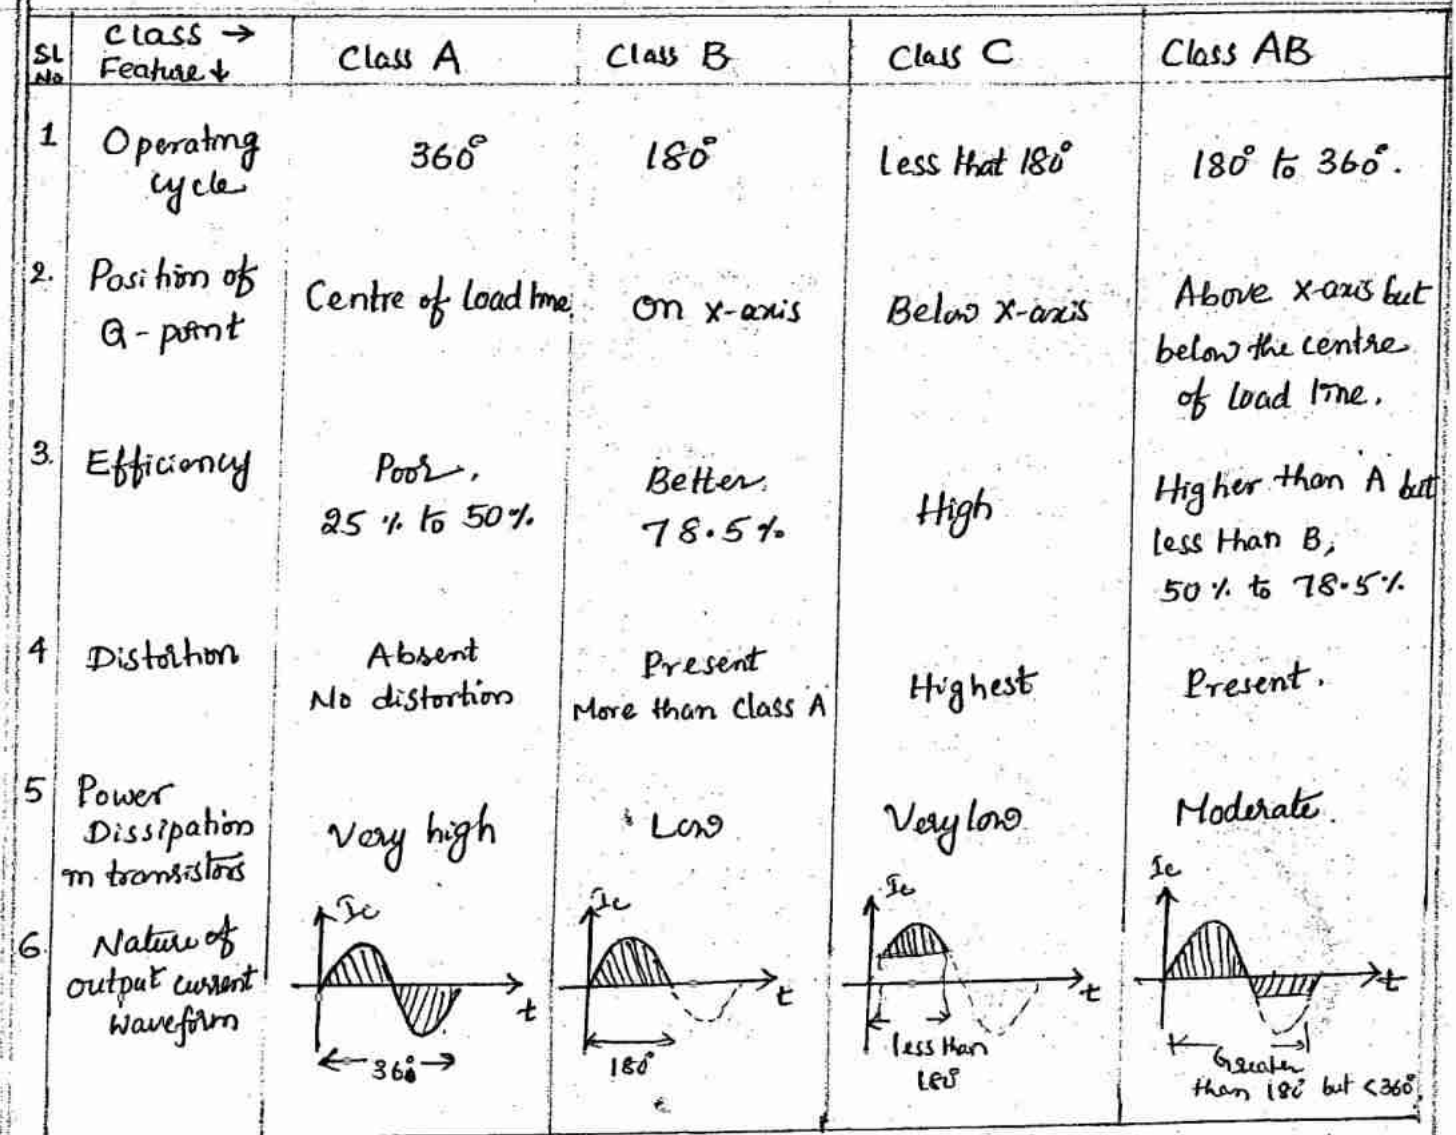 SL No
Class →
Feature ↓
Class A
Class B
Class C
Class AB
1
Operating
cycle
360°
180°
Less that 180°
180° to 360°.
2.
Position of
Q-point
Centre of load line
On x-axis
Below x-axis
Above x-axis but
below the centre
of load line.
3.
Efficiency
Poor.
25 % to 50%.
Better.
78.5%
High
Higher than A but
less than B,
50% to 78.5%
4
Distortion
Absent
No distortion
Present
More than Class A
Highest
Present.
5
Power
Dissipation
in transistors
Very high
Low
Very low
Moderate.
6.
Nature of
output current
waveform
Ic
t
360°
Ic
t
180°
Ic
t
less than
180°
Ic
t
Greater
than 180° but <360°